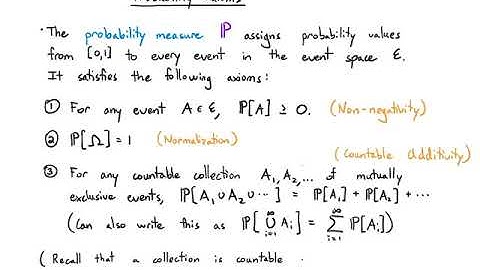 Probability Axioms
· The probability measure ℙ assigns probability values
from [0,1] to every event in the event space Ɛ.
It satisfies the following axioms:
① For any event A ∈ Ɛ, ℙ[A] ≥ 0. (Non-negativity)
② ℙ[Ω] = 1 (Normalization)
(Countable Additivity)
③ For any countable collection A₁, A₂, ... of mutually
exclusive events, ℙ[A₁ ∪ A₂ ∪ ⋯] = ℙ[A₁] + ℙ[A₂] + ⋯
(Can also write this as ℙ[⋃_{i=1}^{∞} A_i] = ∑_{i=1}^{∞} ℙ[A_i])
(Recall that a collection is countable